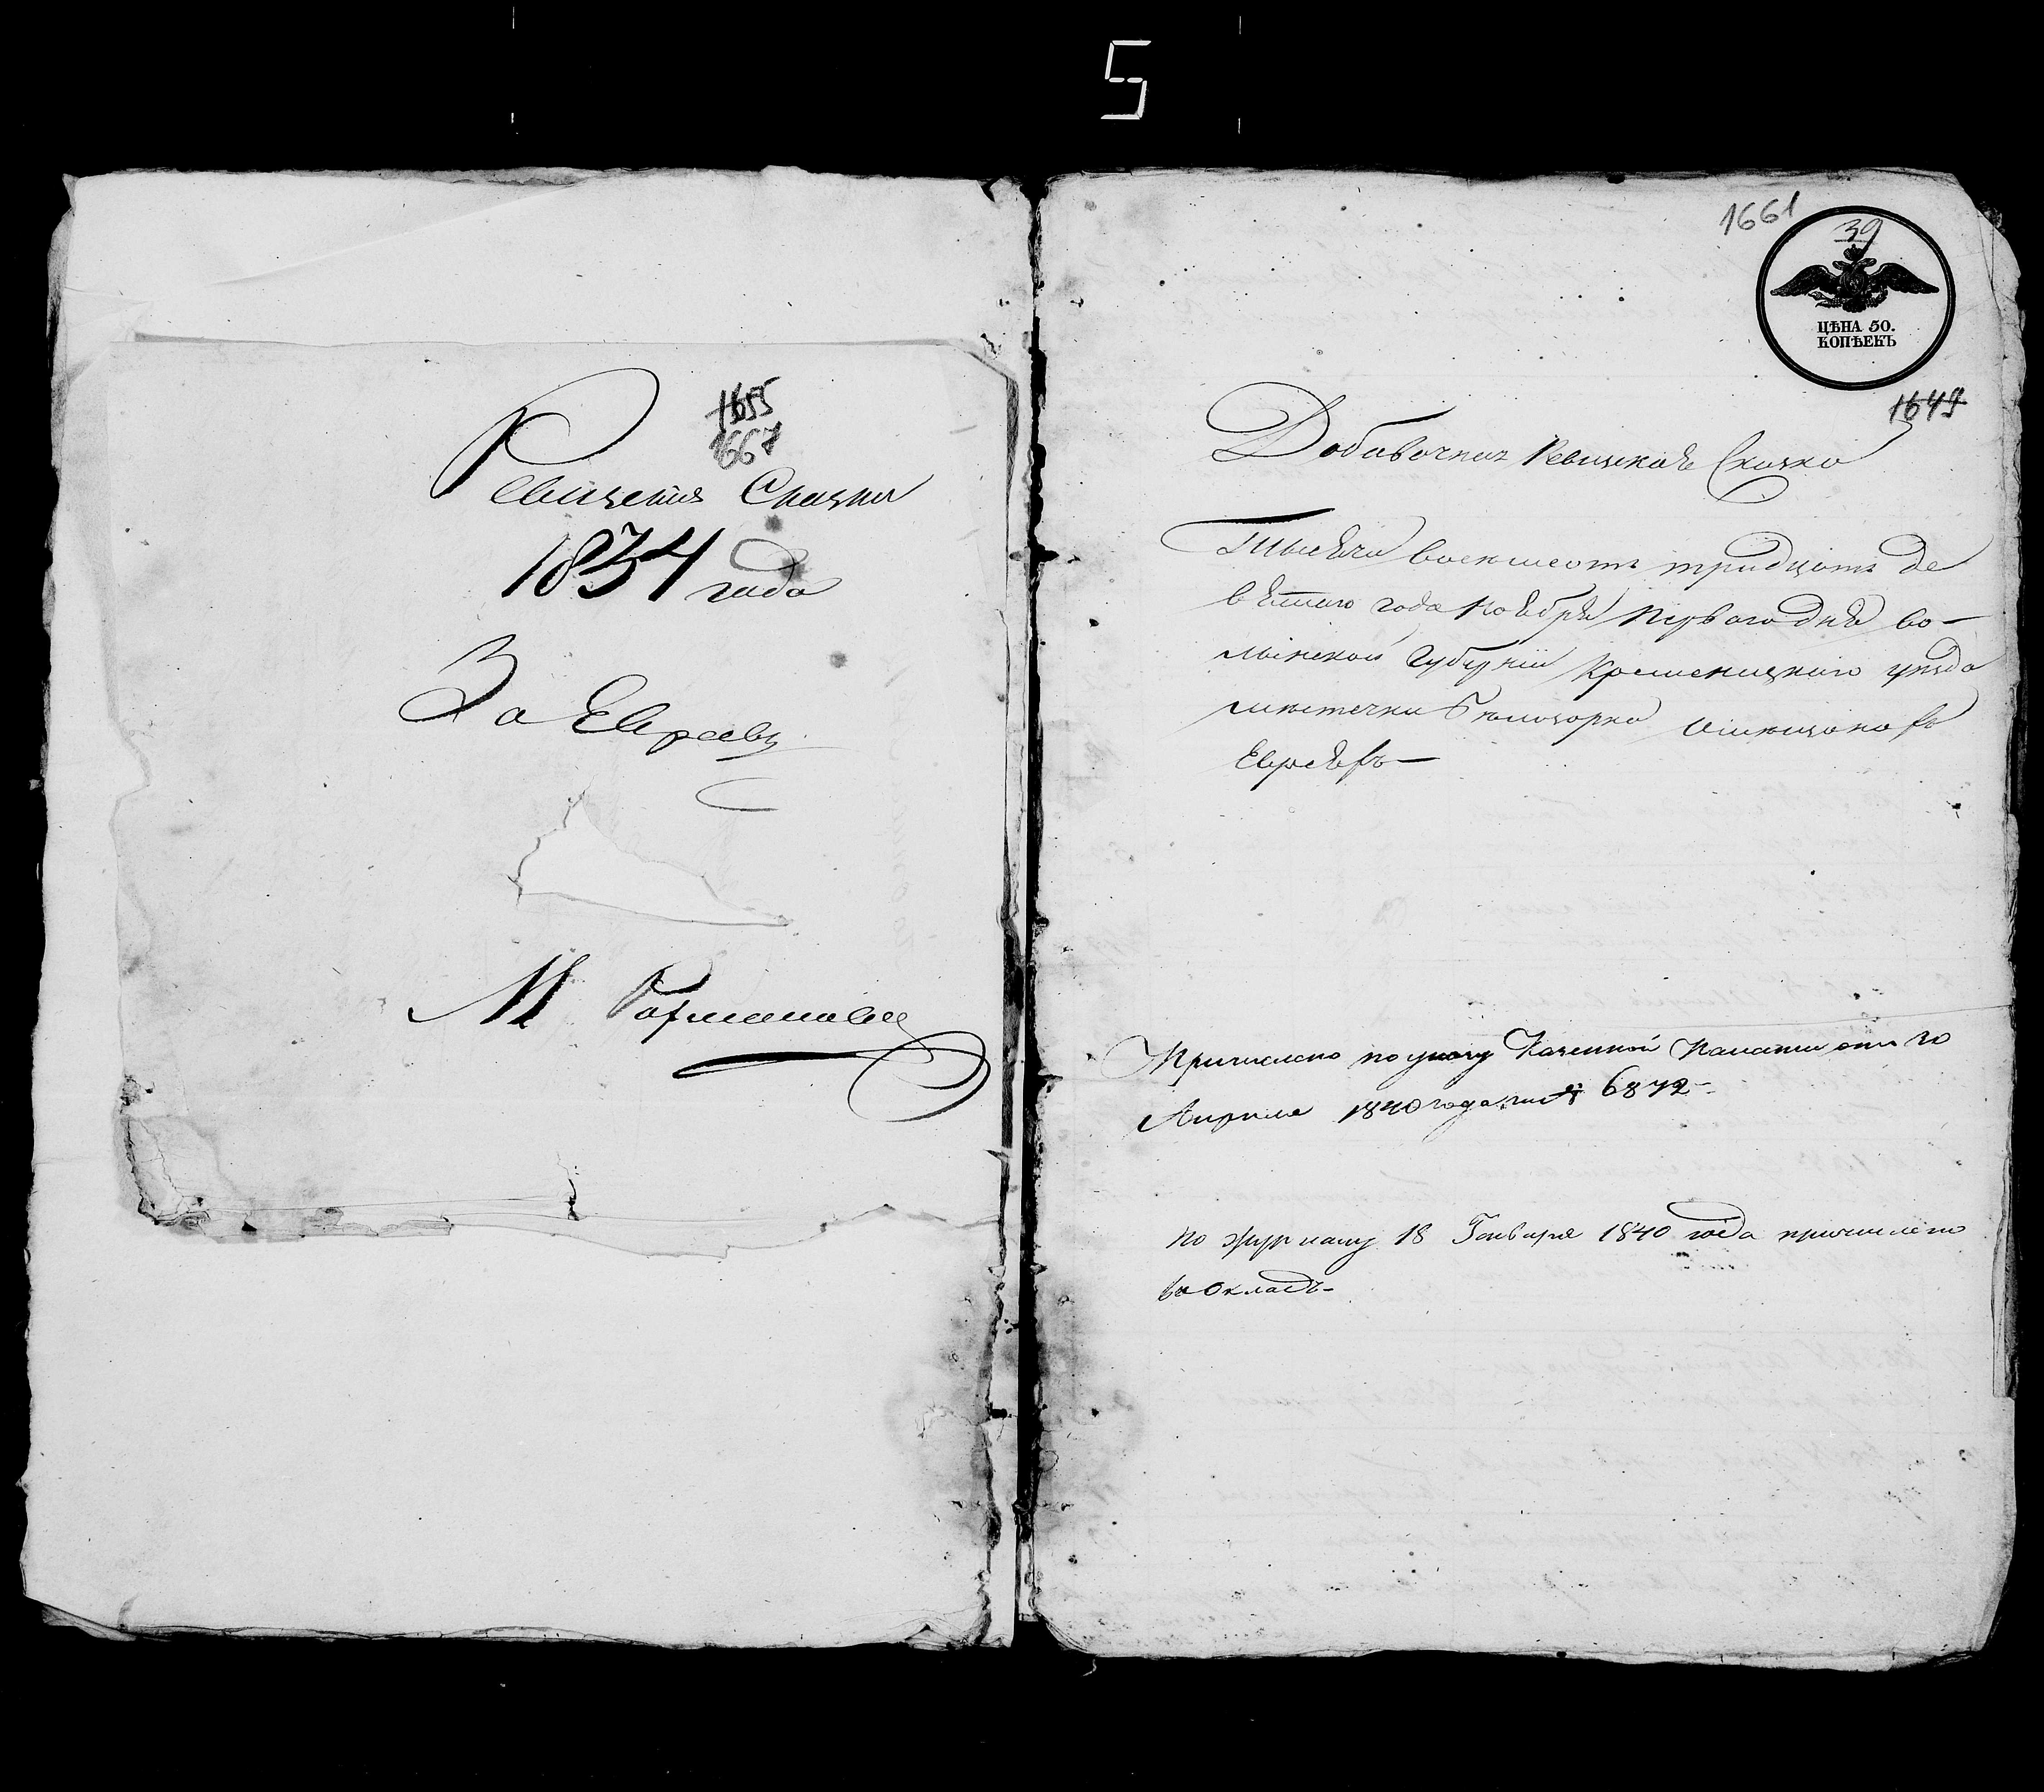 5
1655
1667
Ревизския Сказки
1834 года
За Евреевъ
М
1661
39
ЦѢНА 50.
КОПѢЕКЪ
1649
Добавочная Ревизская Сказка
Тысяча восемсотъ тридцать де
вятаго года ноября перваго дня во-
лынской Губернии Кременецкого уезда
местечка Белозорка о мещанахъ
Евреяхъ—
Причислено по указу Казенной Палаты отъ 30
Апреля 1840 года за № 6872-
по журналу 18 Генваря 1840 года причислено
въ Окладъ-